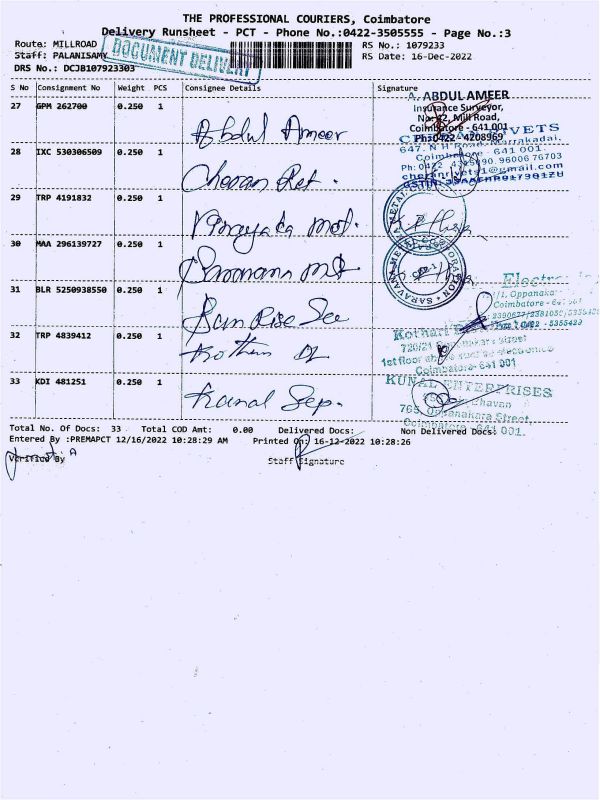 THE PROFESSIONAL COURIERS, Coimbatore
Delivery Runsheet - PCT - Phone No.:0422-3505555 - Page No.:3
Route: MILLROAD RS No.: 1079233
Staff: PALANISAMY RS Date: 16-Dec-2022
DOCUMENT DELIVERY
DRS No.: DCJB107923303
S No Consignment No Weight PCS Consignee Details Signature
27 GPM 262700 0.250 1
Abdul Ameer
A. ABDUL AMEER
Insurance Surveyor,
No: 42, Mill Road,
Coimbatore - 641 001
Ph:0422 - 4208969
28 IXC 530306509 0.250 1
Cheran Ret.
647, N H Road, Marrnkadai,
Coimbatore - 641 001.
96006 76703
cheranrivets1@gmail.com
29 TRP 4191832 0.250 1
Vinayaka mot.
30 MAA 296139727 0.250 1
31 BLR 5250938550 0.250 1
Sun Rise See
Coimbatore
32 TRP 4839412 0.250 1
Kothari
Kothari
1st floor
Coimbatore - 641 001
33 KDI 481251 0.250 1
Kunal Sep.
KUNAL ENTERPRISES
Bhavan
765, Oppanakara Street,
Coimbatore - 641 001.
Total No. Of Docs: 33 Total COD Amt: 0.00 Delivered Docs: Non Delivered Docs:
Entered By :PREMAPCT 12/16/2022 10:28:29 AM Printed On: 16-12-2022 10:28:26
Verified By Staff Signature